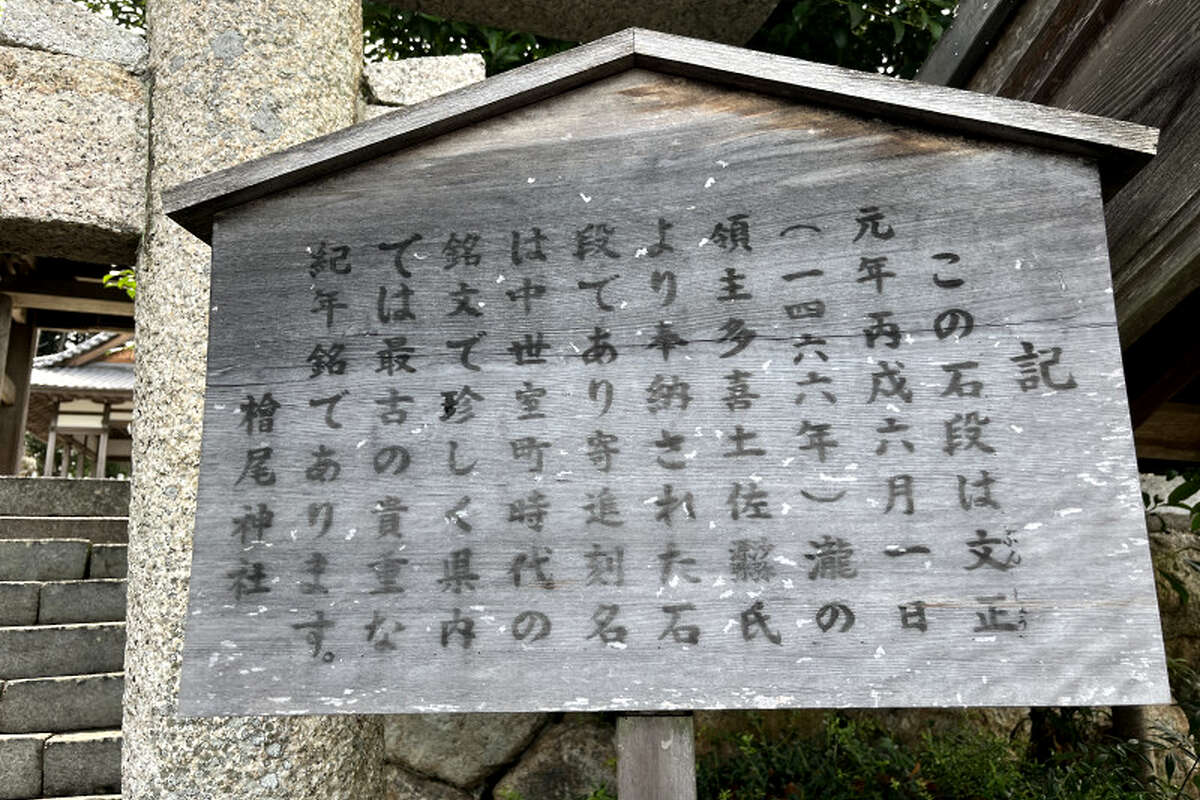 記
この石段は文正
ぶんしょう
元年丙戌六月一日
（一四六六年）瀧の
領主多喜土佐 氏
より奉納された石
段であり寄進刻名
は中世室町時代の
銘文で珍しく県内
では最古の貴重な
紀年銘であります。
檜尾神社